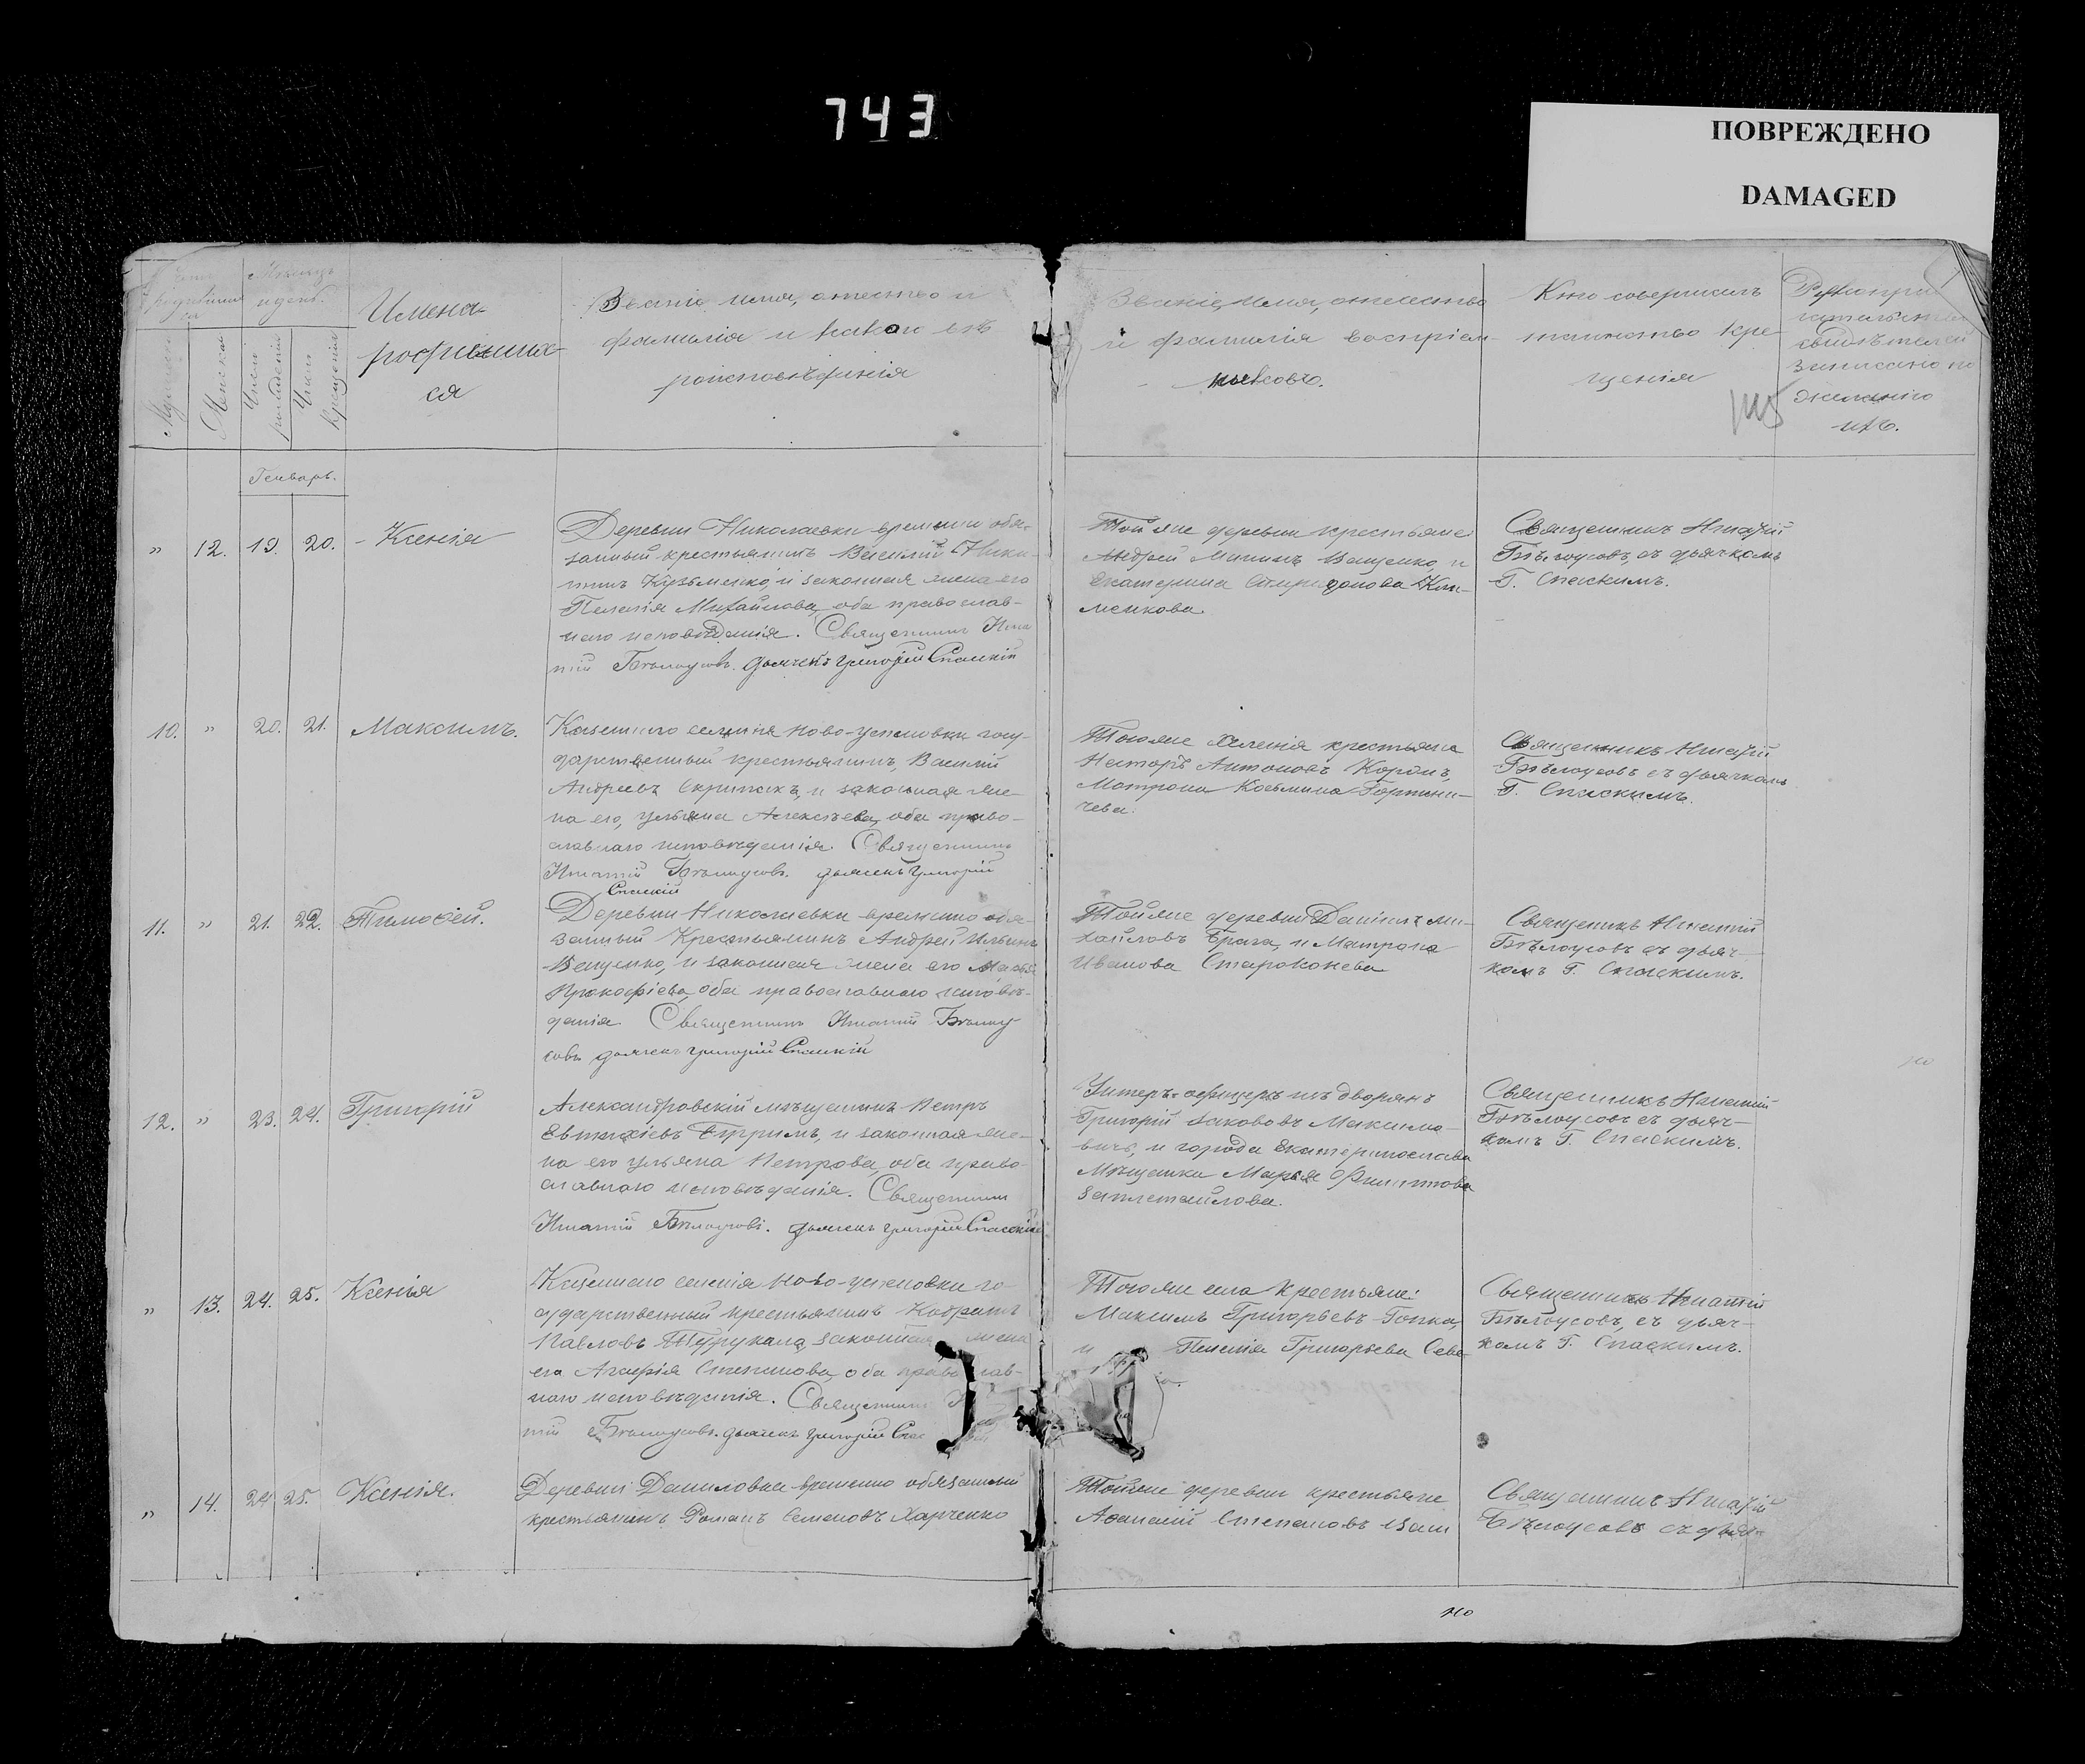 743
ПОВРЕЖДЕНО
DAMAGED
Имена
родивших-
ся
Званіе, имя, отчество и
фамилія и какого вѣ-
роисповѣданія
Званіе, имя, отчество
и фамилія воспріем-
никовъ.
Кто совершилъ
таинство кре-
щенія
Рукоприк
свидѣтелей
записано по
желанію
ихъ.
Число рожденія
Число крещенія
Генварь.
" 12. 19. 20. Ксенія
Деревни Николаевки временно обя-
занный крестьянинъ Василій Ники-
тинъ Кузьменко, и законная жена его
Пелагія Михайлова, оба православ-
наго исповѣданія. Священникъ Игна
тій Бѣлоусовъ. дьячекъ Григорій Спаскій
Той же деревни крестьяне
Андрей Ващенко, и
Екатерина Спиридонова Кли-
менкова.
Священникъ Игнатій
Бѣлоусовъ, съ дьячкомъ
Г. Спаскимъ.
10. " 20. 21. Максимъ.
Казеннаго селенія Ново-успеновки госу-
дарственный крестьянинъ, Василій
Андреевъ Скрипакъ, и законная же-
на его, Ульяна Алексѣева, оба право-
славнаго исповѣданія. Священникъ
Игнатій Бѣлоусовъ. дьячекъ Григорій
Спаскій
Того же селенія крестьяне
Несторъ Антоновъ
Матрона Козьмина
чева.
Священникъ Игнатій
Бѣлоусовъ съ дьячкомъ
Г. Спаскимъ.
11. " 21. 22. Тимофей.
Деревни Николаевки временно обя-
занный Крестьянинъ Андрей Ильинъ
Ващенко, и законная жена его
Прокофіева, оба православнаго исповѣ-
данія. Священникъ Игнатій Бѣлоу
совъ дьячекъ Григорій Спаскій
Той же деревни Даніилъ Ми-
хайловъ Брага, и Матрона
Иванова Староконева
Священникъ Игнатій
Бѣлоусовъ съ дьяч-
комъ Г. Спаскимъ.
12. " 23. 24. Григорій
Александровскій мѣщанинъ Петръ
Евтихіевъ и законная же-
на его Ульяна Петрова, оба право-
славнаго исповѣданія. Священникъ
Игнатій Бѣлоусовъ. дьячекъ Григорій Спаскій
Унтеръ-офицеръ изъ дворянъ
Григорій Яковлевъ Максимо-
вичъ, и города Екатеринослава
Мѣщанка Марья Филиппова
Заплеталова.
Священникъ Игнатій
Бѣлоусовъ съ дьяч-
комъ Г. Спаскимъ.
" 13. 24. 25. Ксенія
Казеннаго селенія Ново-успеновки го-
сударственный крестьянинъ Кондратъ
Павловъ законная жена
его Агафія Степанова, оба православ-
наго исповѣданія. Священникъ
тій Бѣлоусовъ. дьячекъ Григорій Спас
Того же села Крестьяне:
Максимъ Григорьевъ Гопка,
и Пелагія Григорьева
Священникъ Игнатій
Бѣлоусовъ, съ дьяч-
комъ Г. Спаскимъ.
" 14. 24 25. Ксенія.
Деревни Даниловки временно обязанный
крестьянинъ Романъ Семеновъ Харченко
Той же деревни крестьяне
Афанасій Степановъ
Священникъ Игнатій
Бѣлоусовъ съ дьяч-